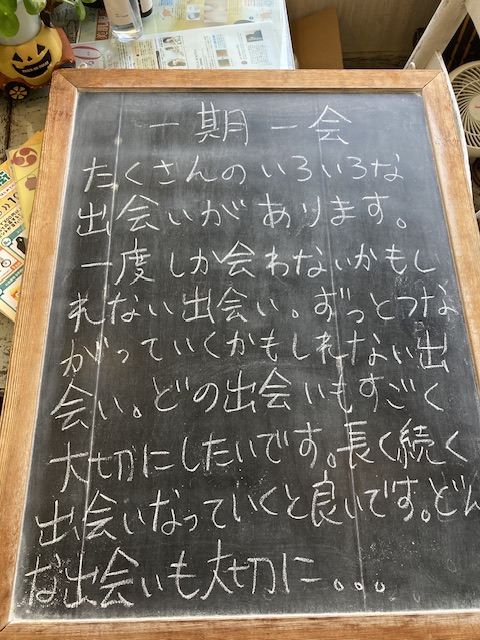 一期一会
たくさんのいろいろな
出会いがあります。
一度しか会わないかもし
れない出会い。ずっとつな
がっていくかもしれない出
会い。どの出会いもすごく
大切にしたいです。長く続く
出会いなっていくと良いです。どん
な出会いも大切に。。。